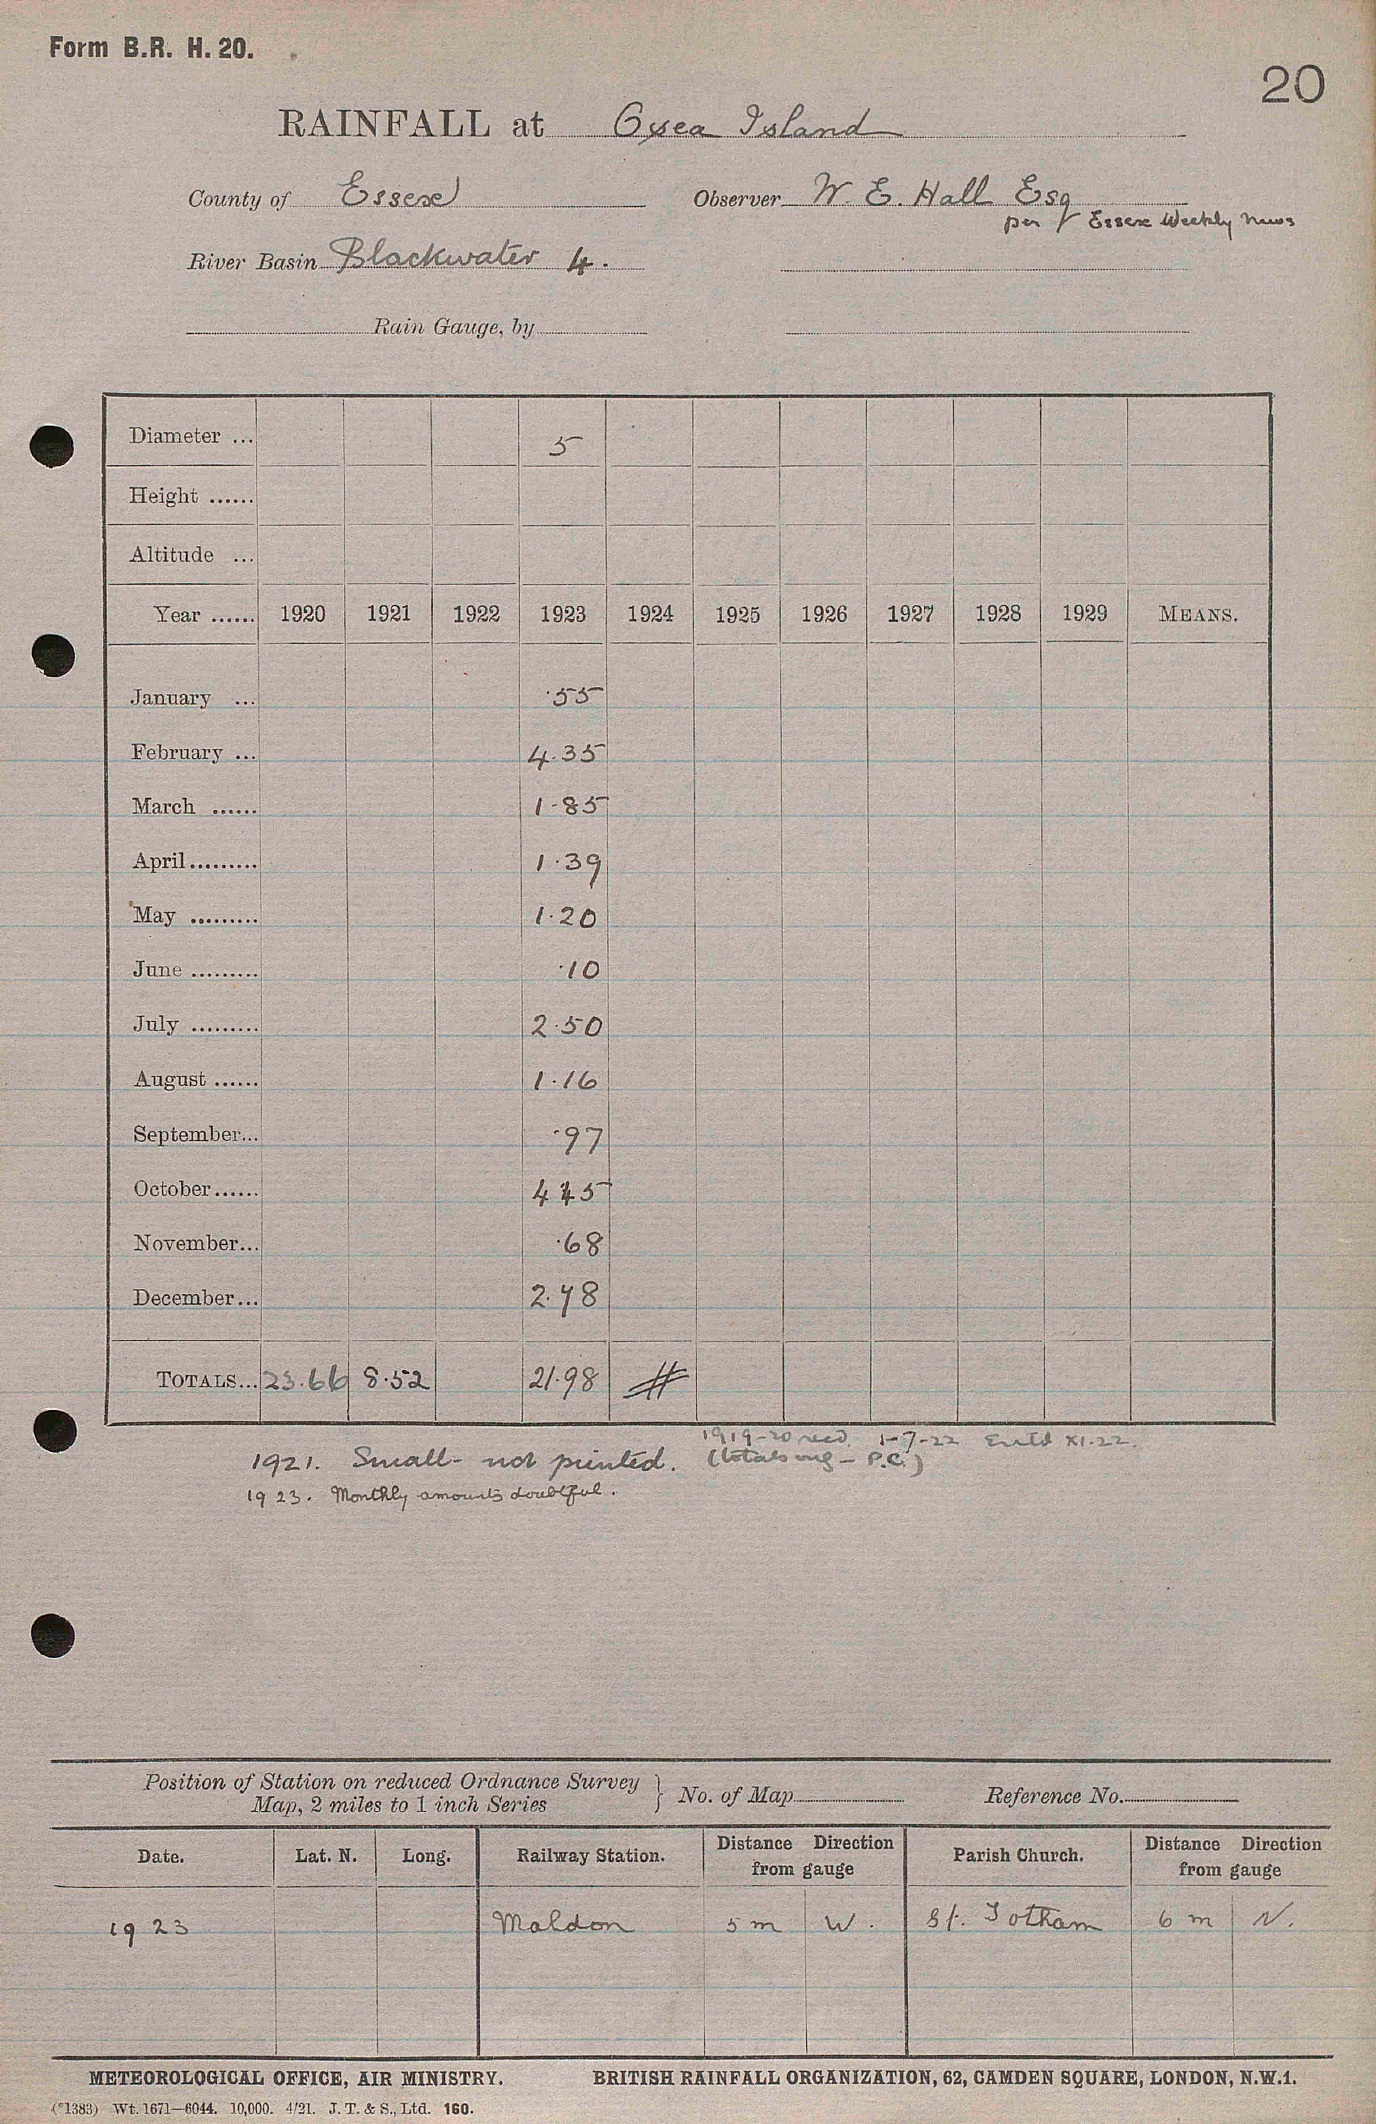 Form B.R. H. 20.
20
RAINFALL at Osea Island
County of Essex Observer W. E. Hall Esq
per Essex Weekly News
River Basin Blackwater 4.
Rain Gauge, by
Diameter ... 5
Height ......
Altitude ...
Year ...... 1920 1921 1922 1923 1924 1925 1926 1927 1928 1929 MEANS.
January ... ·55
February ... 4.35
March ...... 1.85
April ......... 1.39
May ......... 1.20
June ......... ·10
July ......... 2.50
August ...... 1.16
September... ·97
October...... 4.45
November... ·68
December... 2.78
TOTALS... 23.66 8.52 21.98 #
1919-20 recd. 1-7-22 Entd XI.22.
1921. Small - not printed. (totals only - P.C.)
1923. Monthly amounts doubtful.
Position of Station on reduced Ordnance Survey
Map, 2 miles to 1 inch Series } No. of Map Reference No.
Date. Lat. N. Long. Railway Station. Distance Direction from gauge Parish Church. Distance Direction from gauge
1923 Maldon 5 m W. Gt. Totham 6 m N.
METEOROLOGICAL OFFICE, AIR MINISTRY. BRITISH RAINFALL ORGANIZATION, 62, CAMDEN SQUARE, LONDON, N.W.1.
(*1383) Wt. 1671—6044. 10,000. 4/21. J. T. & S., Ltd. 160.